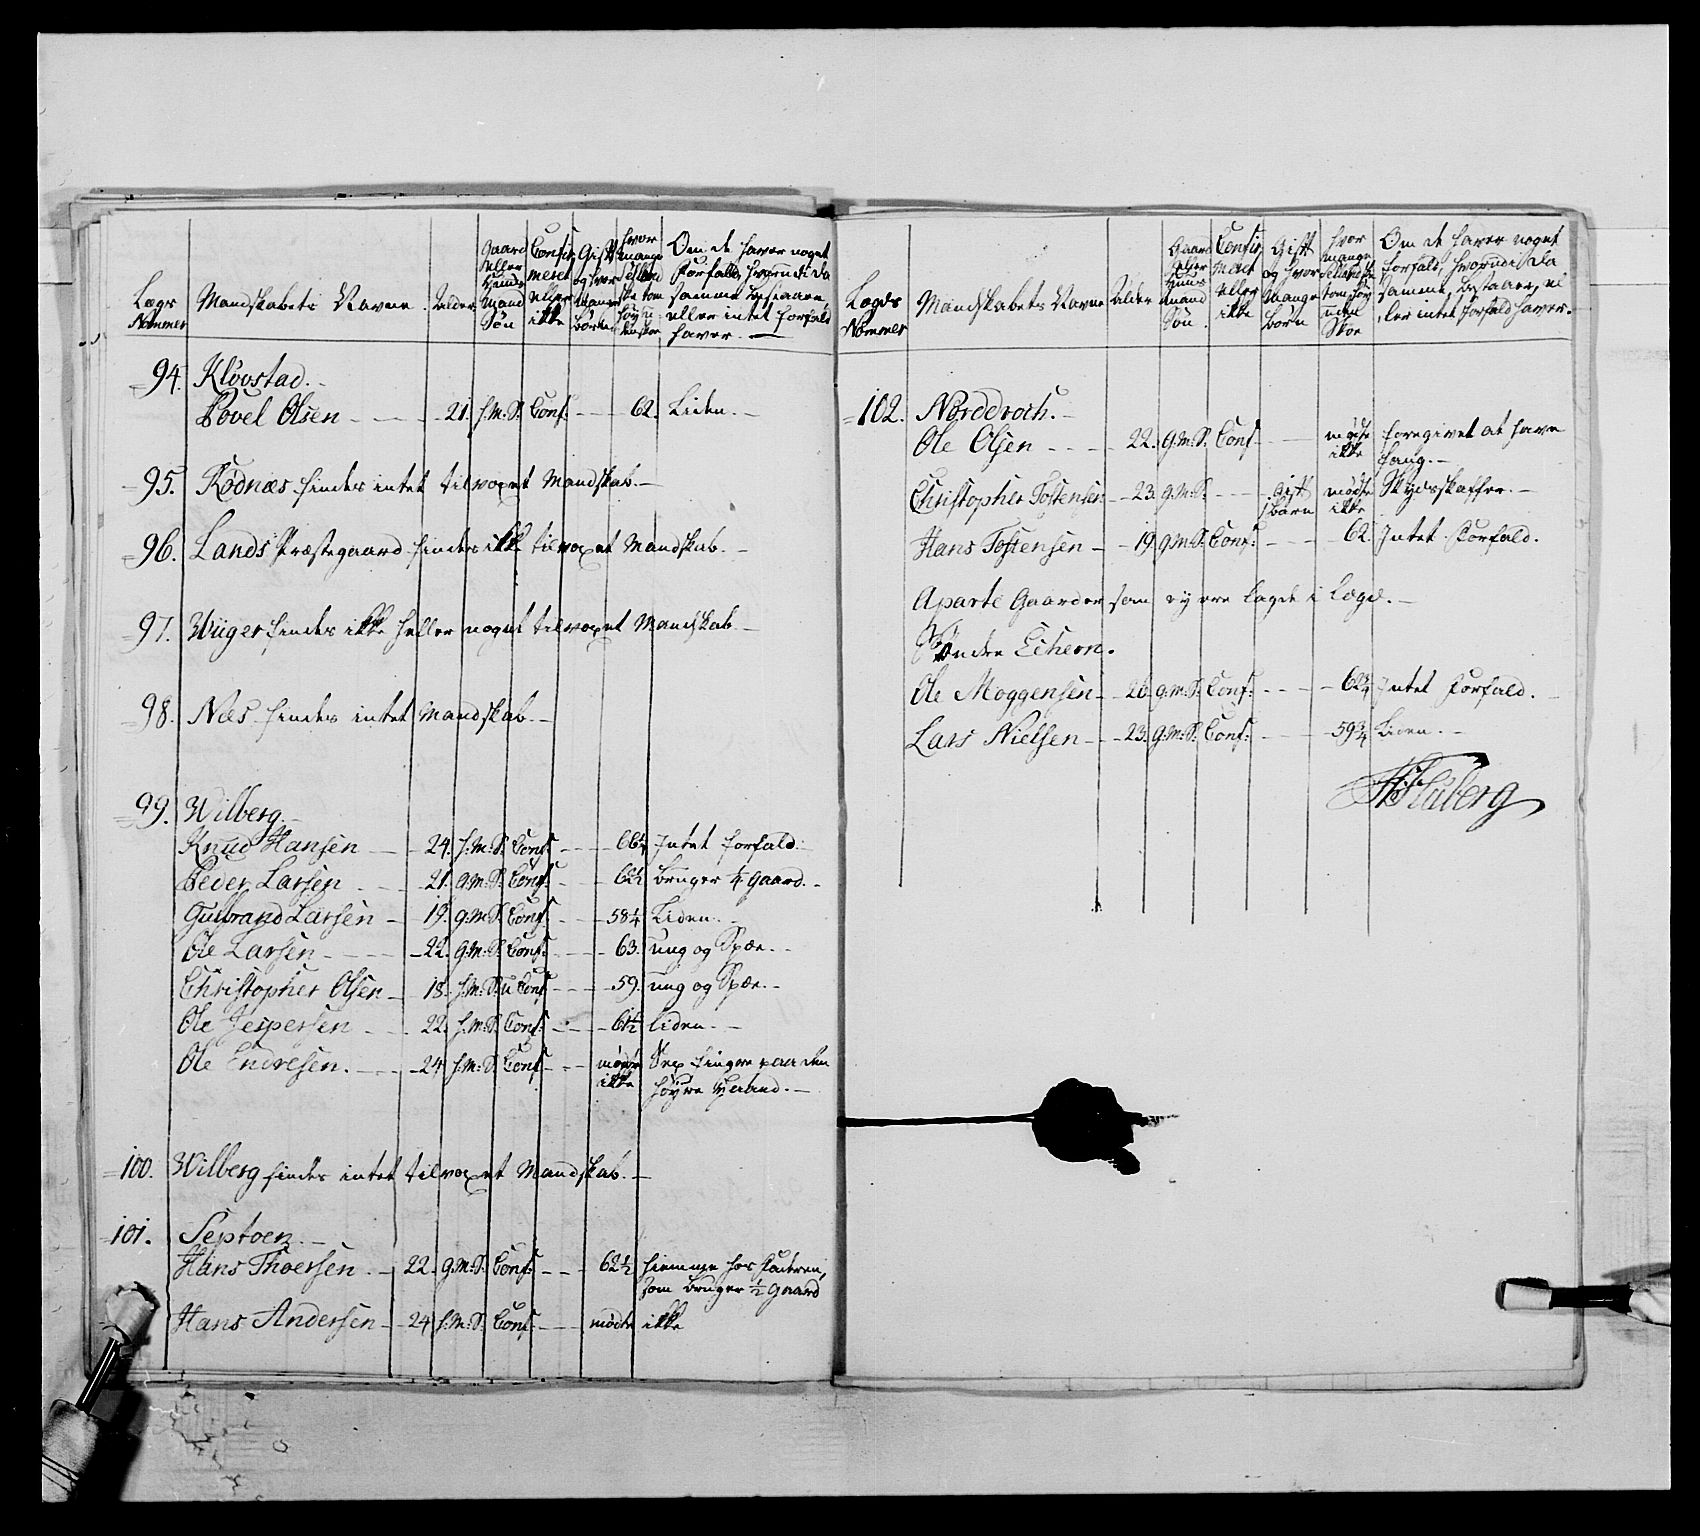 Lægs Nommer
Mandskabets Navne.
Alder
Gaard eller Huus Mand Søn
Confirmeret eller ikke
Gift og hvor mange børn
hvor mange
Om de haver noget Forfald, hvorudi da samme bestaaer, eller intet forfald haver.
94. Klövstad.
Povel Olsen 21. H.M.S. Conf: 62. Liden.
95. Rødnæs findes intet tilvoxet Mandskab.
96. Lands Præstegaard findes ikke tilvoxet Mandskab.
97. Wüger findes ikke heller noget tilvoxet Mandskab
98. Næs findes intet Mandskab.
99. Wilberg.
Knud Hansen 24. H.M.S. Conf: Intet forfald.
Peder Larsen 21. G.M.S. Conf: bruger ¼ gaard.
Gulbrand Larsen 19. G.M.S. Conf: 58¼ Liden.
Ole Larsen 22. G.M.S. Conf: 63. ung og Spæe.
Christopher Olsen 18. H.M.S. u Conf 59. ung og Spæe.
Ole Jespersen 22. H.M.S. Conf: 61½ liden.
Ole Endresen. 24. H.M.S. Conf mødte ikke fingre paa den
høyre Haand.
100. Wilberg findes intet tilvoxet Mandskab.
101. Septoen.
Hans Thoersen 22. G.M.S. Conf: 62½ hiemme hos Faderen,
som bruger ½ gaard
Hans Andersen 24. H.M.S. Conf: mødte ikke
Lægds Nommer
Mandskabets Navne
Alder
Gaard eller Huus mand Søn.
Confirmeret eller ikke
Gift og hvor Mange börn
hvor mange Sellandske tom: høy uden Skoe
Om de haver noget forfald, hvorudi da samme, bestaaer, eller intet forfald haver.
102. Norddroch.
Ole Olsen 22. G.M.S. Conf mødte ikke foregivet at have
Christopher Tostensen 23. G.M.S. Gift Børn mødte ikke Skydsskaffer.
Hans Tostensen 19. G.M.S. Conf: 62. Intet Forfald.
Aparte Gaarder som ey ere lagde i Lægd.
Søndre Echern.
Ole Moggensen 20. G.M.S. Conf: 62¾ Intet Forfald.
Lars Nielsen 23. G.M.S. Conf: 59¾ Liden.